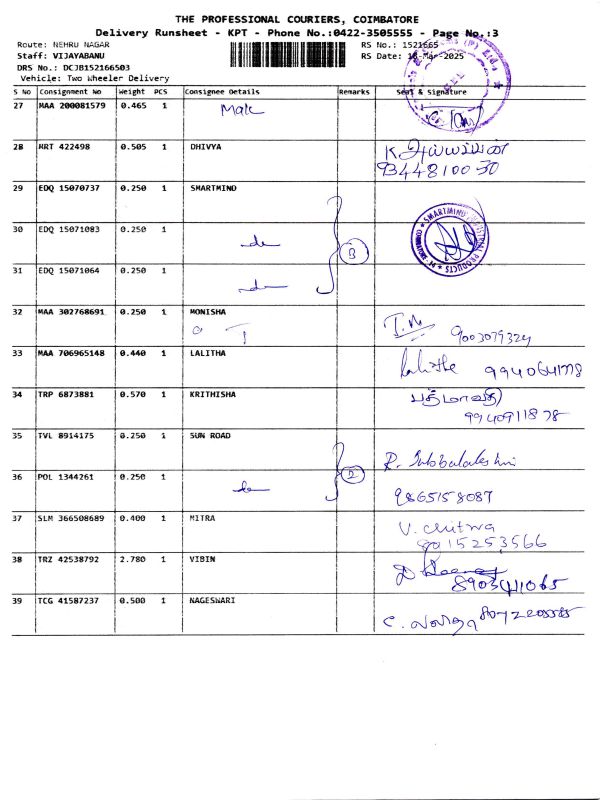 THE PROFESSIONAL COURIERS, COIMBATORE
Delivery Runsheet - KPT - Phone No.:0422-3505555 - Page No.:3
Route: NEHRU NAGAR RS No.: 1521665
Staff: VIJAYABANU RS Date: 18-Mar-2025
DRS No.: DCJB152166503
Vehicle: Two Wheeler Delivery
S No Consignment No Weight PCS Consignee Details Remarks Seal & Signature
27 MAA 200081579 0.465 1
28 KRT 422498 0.505 1 DHIVYA K அய்யப்பன்
93448100 50
29 EDQ 15070737 0.250 1 SMARTMIND
30 EDQ 15071083 0.250 1 do 3
31 EDQ 15071064 0.250 1 do
32 MAA 302768691 0.250 1 MONISHA
9003079324
33 MAA 706965148 0.440 1 LALITHA Lalitha 9940641778
34 TRP 6873881 0.570 1 KRITHISHA பத்மாவதி
9940911878
35 TVL 8914175 0.250 1 SUN ROAD R. Subbalakshmi
36 POL 1344261 0.250 1 do 2 9865158087
37 SLM 366508689 0.400 1 MITRA V. Chitra
8015253566
38 TRZ 42538792 2.780 1 VIBIN
8903411065
39 TCG 41587237 0.500 1 NAGESWARI